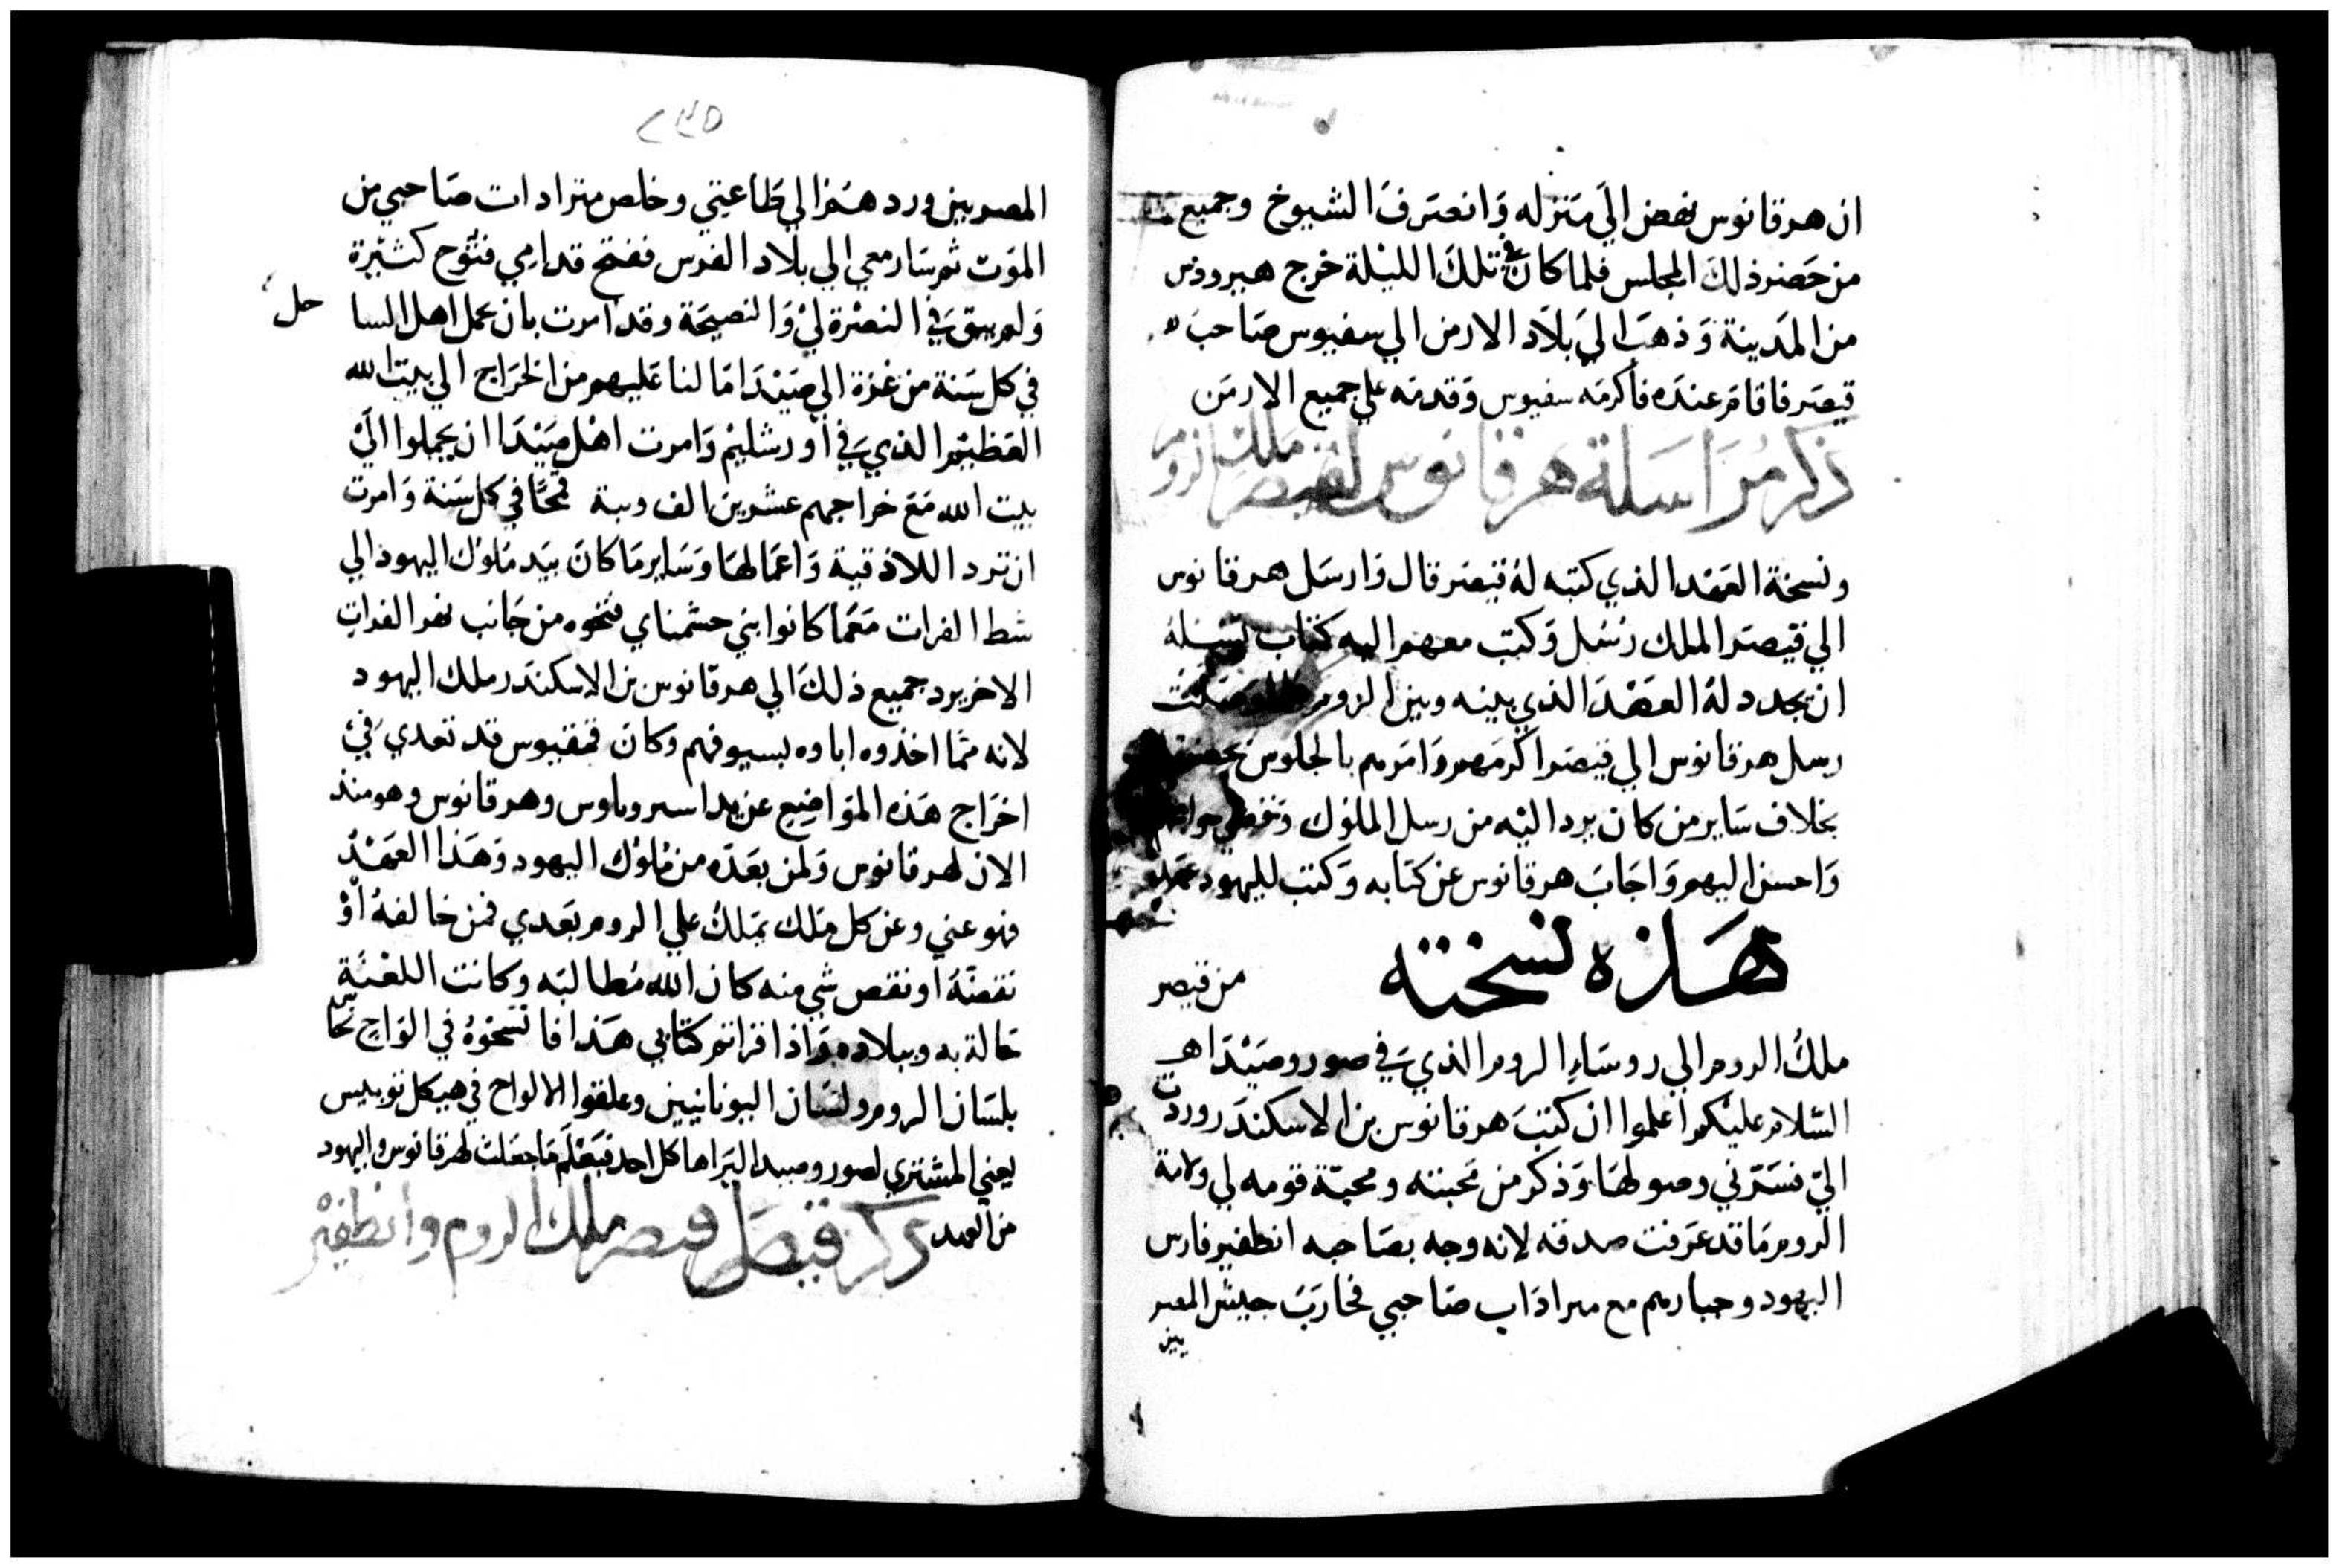 ان هرقانوس نهض الي منزله وانصرف الشيوخ وجميع
من حضر ذلك المجلس فلما كان في تلك الليلة خرج هيرودس
من المدينة وذهب الي بلاد الارمن الي سفيوس صاحب
قيصر فاقام عنده فاكرمه سفيوس وقدمه علي جميع الارمن
ذكر مراسلة هرقانوس لقيصر ملك الروم
ونسخة العهد الذي كتبه له قيصر قال وارسل هرقانوس
الي قيصر الملك رسل وكتب معهم اليه كتاب يسله
ان يجدد له العهد الذي بينه وبين الروم فلما وصلت
رسل هرقانوس الي قيصر اكرمهم وامرهم بالجلوس
بخلاف ساير من كان يرد اليه من رسل الملوك وقضي
واحسن اليهم واجاب هرقانوس عن كتابه وكتب لليهود
هذه نسخته من قيصر
ملك الروم الي روساء الروم الذي في صور وصيدا
السلام عليكم اعلموا ان كتب هرقانوس بن الاسكندر وردت
الي فسرني وصولها وذكر من محبته ومحبة قومه لي ولامة
الروم ما قد عرفت صدقه لانه وجه بصاحبه انطفير فارس
اليهود وجبارهم مع مرادات صاحبي فحارب جيش المصر
يين
٢٣٥
المصريين وردهم الي طاعتي وخلص متراداث صاحبي من
الموت ثم سار معي الي بلاد الفرس ففتح قدامي فتوح كثيرة
ولم يبق في النصرة لي والنصيحة وقد امرت بان يحمل اهل السا حل
في كل سنة من غزة الي صيدا ما لنا عليهم من الخراج الي بيت الله
العظيم الذي في اورشليم وامرت اهل صيدا ان يحملوا الي
بيت الله مع خراجهم عشرين الف ويبة قمحا في كل سنة وامرت
ان ترد اللاذقية واعمالها وساير ما كان بيد ملوك اليهود الي
شط الفرات معما كانوا بني حشمناي فتحوه من جانب نهر الفرات
الاخر يرد جميع ذلك الي هرقانوس بن الاسكندر ملك اليهود
لانه مما اخذوه اباوه بسيوفهم وكان فمفيوس قد تعدي في
اخراج هذه المواضع عن يد اسروبلوس وهرقانوس وهو منذ
الان لهرقانوس ولمن بعده من ملوك اليهود وهذا العهد
فهو عني وعن كل ملك يملك علي الروم بعدي فمن خالفه او
نقضه او نقص شي منه كان الله مطالبه وكانت اللعنة
حالة به وببلاده واذا قراتم كتابي هذا فانسخوه في الواح نحاس
بلسان الروم ولسان اليونانيين وعلقوا الالواح في هيكل نوبيس
يعني المشتري لصور وصيدا ليراها كل احد فيعلم ما جعلت لهرقانوس واليهود
من العهد ذكر قيصر ملك الروم وانطفير